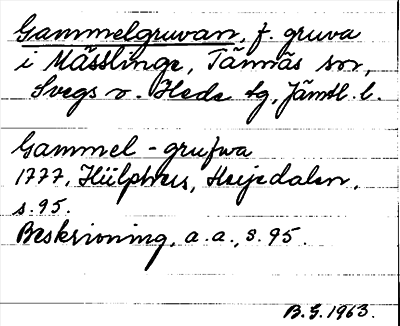 Gammelgruvan, f. gruva
i Mässlinge, Tännäs sn,
Svegs o. Hede tg, Jämtl. l.
Gammel-grufwa
1777, Hülphers, Herjedalen,
s. 95.
Beskrivning, a.a., s. 95.
B.G. 1963.